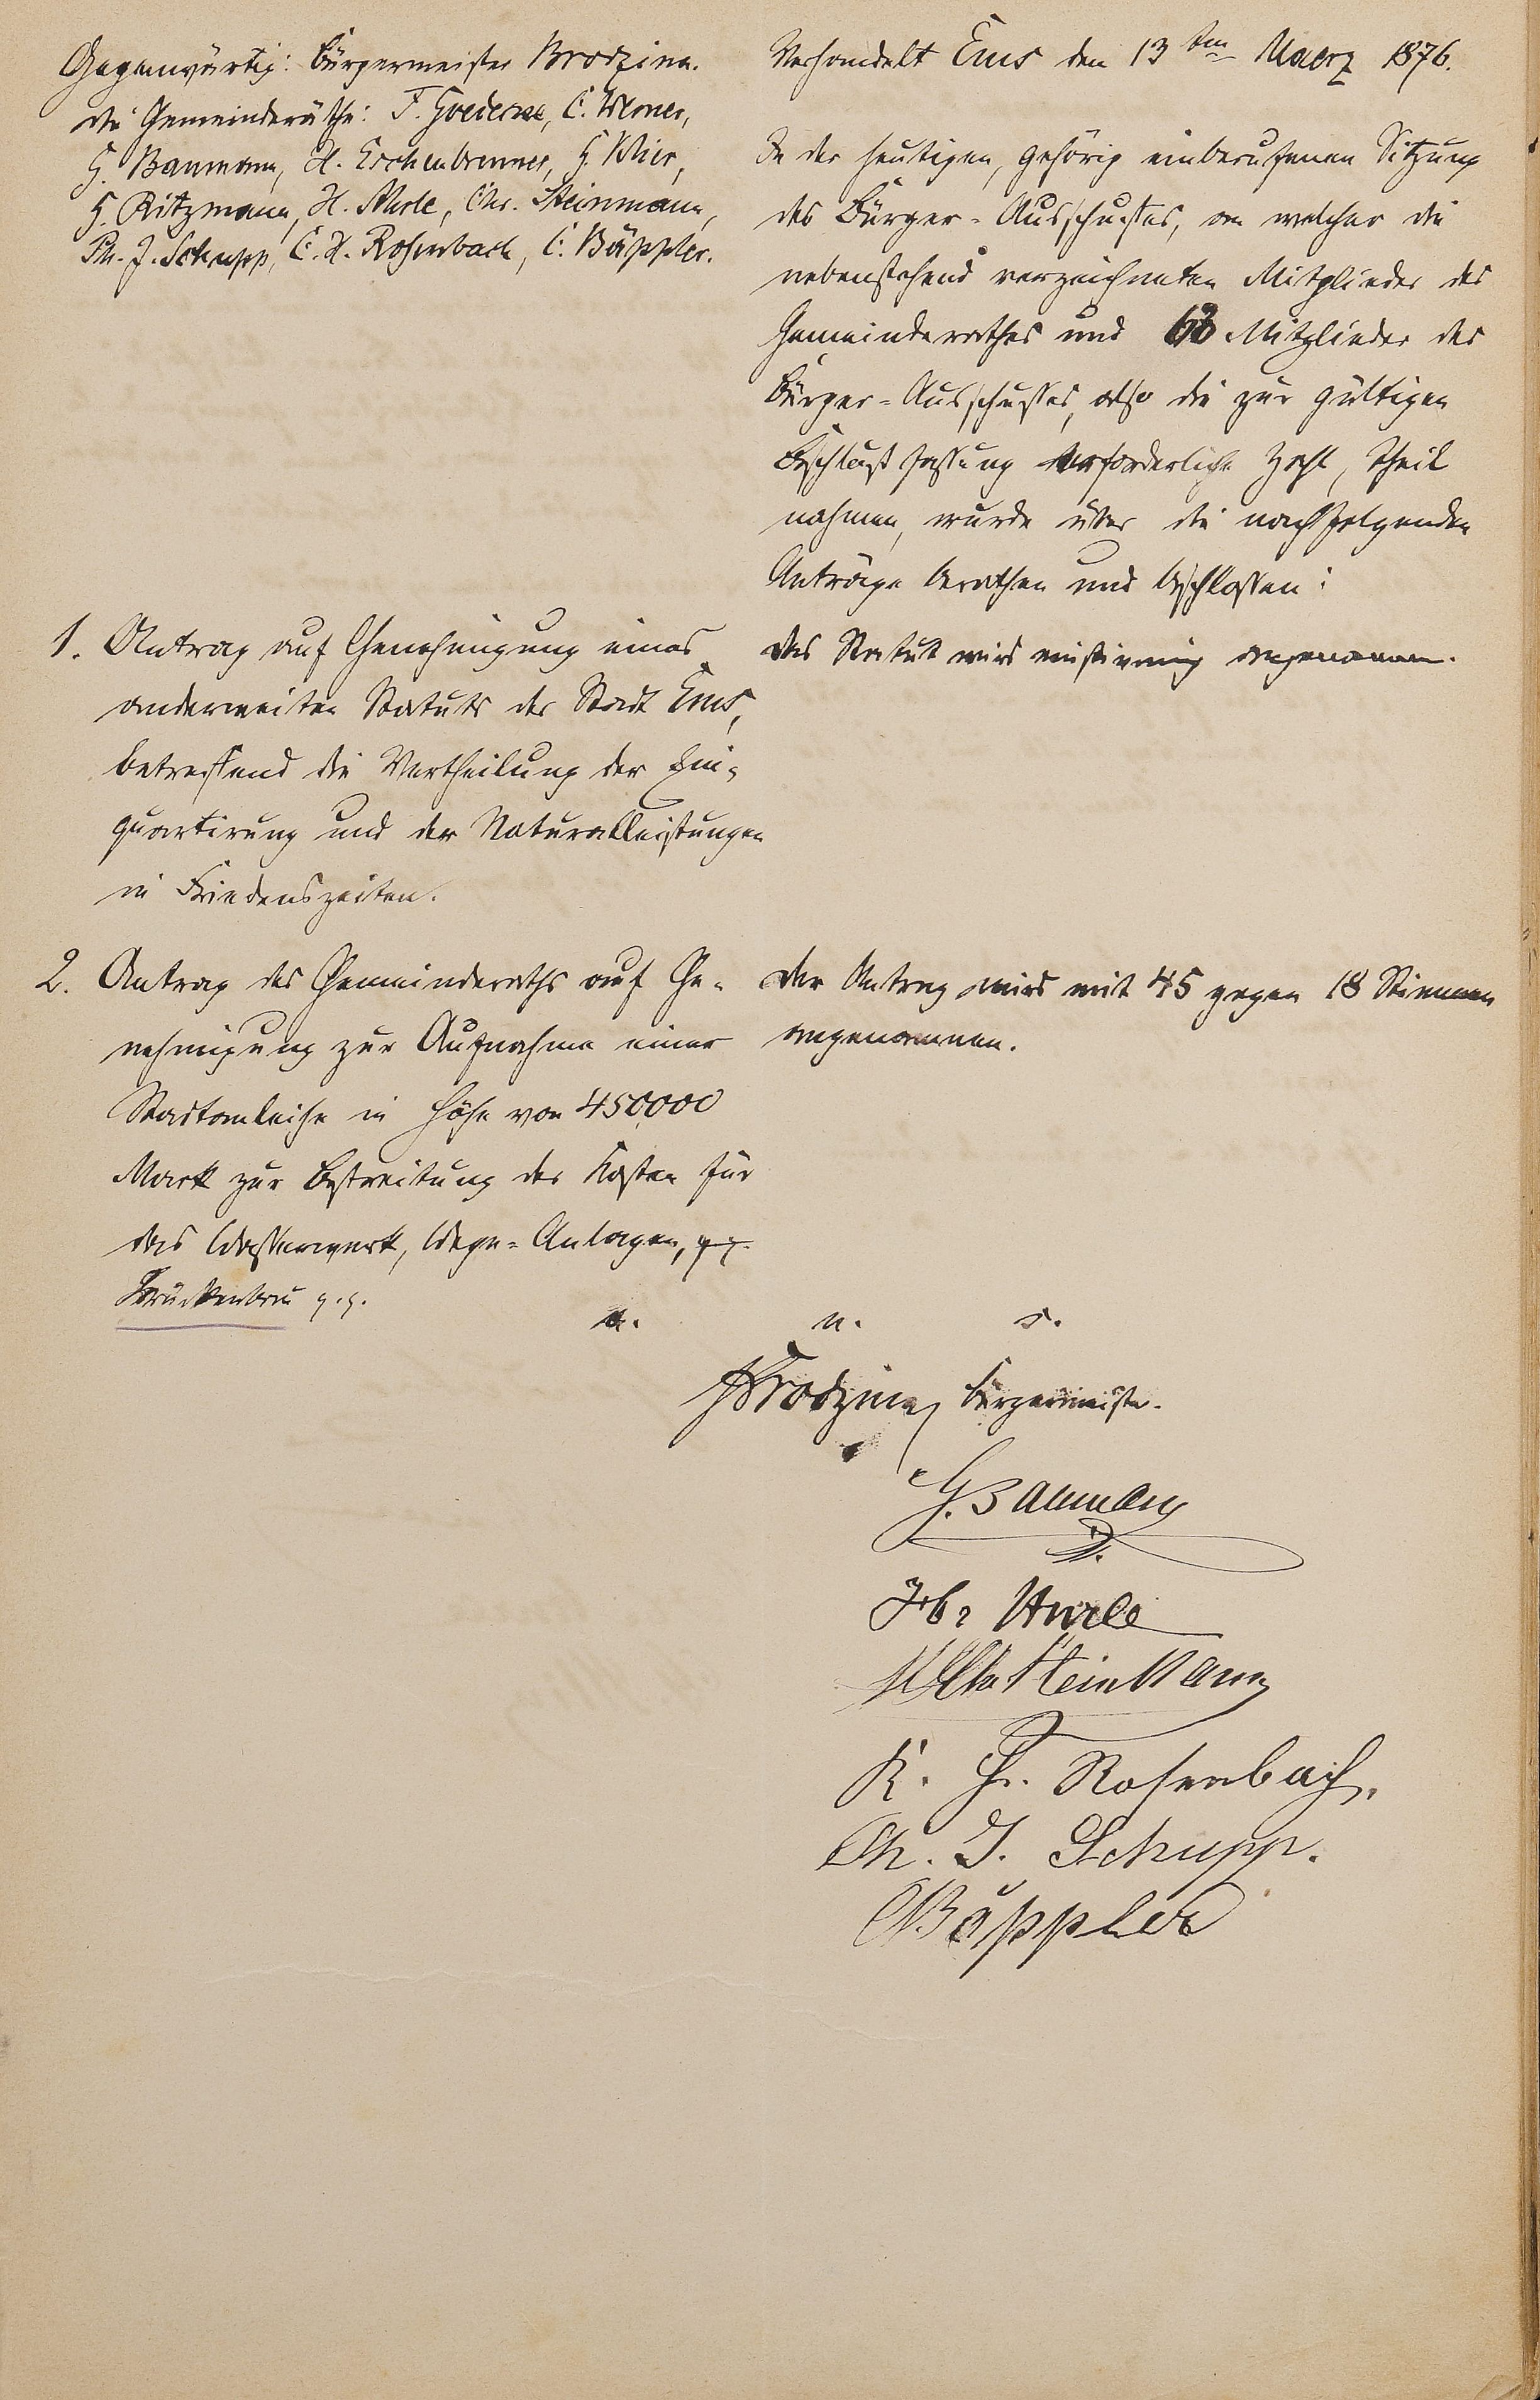 Gegenwärtig: Bürgermeister Brodzina.
die Gemeinderäthe: F. Goedecke, C. Werner,
G. Baumann, H. Eschenbrenner, G. Klier,
G. Ritzmann, H. Nurle, Chr. Steinmann,
Ph. J. Schupp, C. H. Rosenbach, C. Bäppler.
Verhandelt Ems den 13ten Maerz 1876.
In der heutigen, gehörig einberufenen Sitzung
des Bürger-Ausschusses, an welcher die
nebenstehend verzeichneten Mitglieder des
Gemeinderathes und 63 Mitglieder des
Bürger-Ausschusses, also die zur gültigen
Beschlußfassung erforderliche Zahl, Theil
nahmen, wurde über die nachfolgenden
Anträge berathen und beschlossen:
1. Antrag auf Genehmigung eines
anderweiten Statuts der Stadt Ems,
betreffend die Vertheilung der Ein-
quartirung und der Naturalleistungen
in Friedenszeiten.
Das Statut wird einstimmig angenommen.
2. Antrag des Gemeinderaths auf Ge-
nehmigung zur Aufnahme einer
Stadtanleihe in Höhe von 450,000
Mark zur Bestreitung der Kosten für
das Wasserwerk, Wege-Anlagen,
Brückenbau p.p.
Der Antrag wird mit 45 gegen 18 Stimmen
angenommen.
a. u. s.
Brodzina Bürgermeister.
G. Baumann
Nurle
Chr Steinmann
K. H. Rosenbach.
Ph. J. Schupp.
C Bäppler